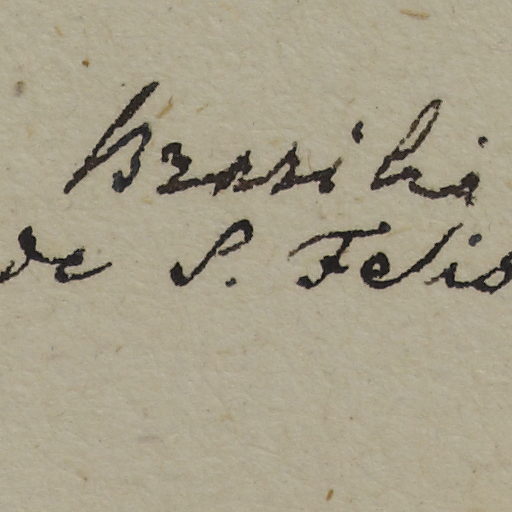 brasili
de S. Felis